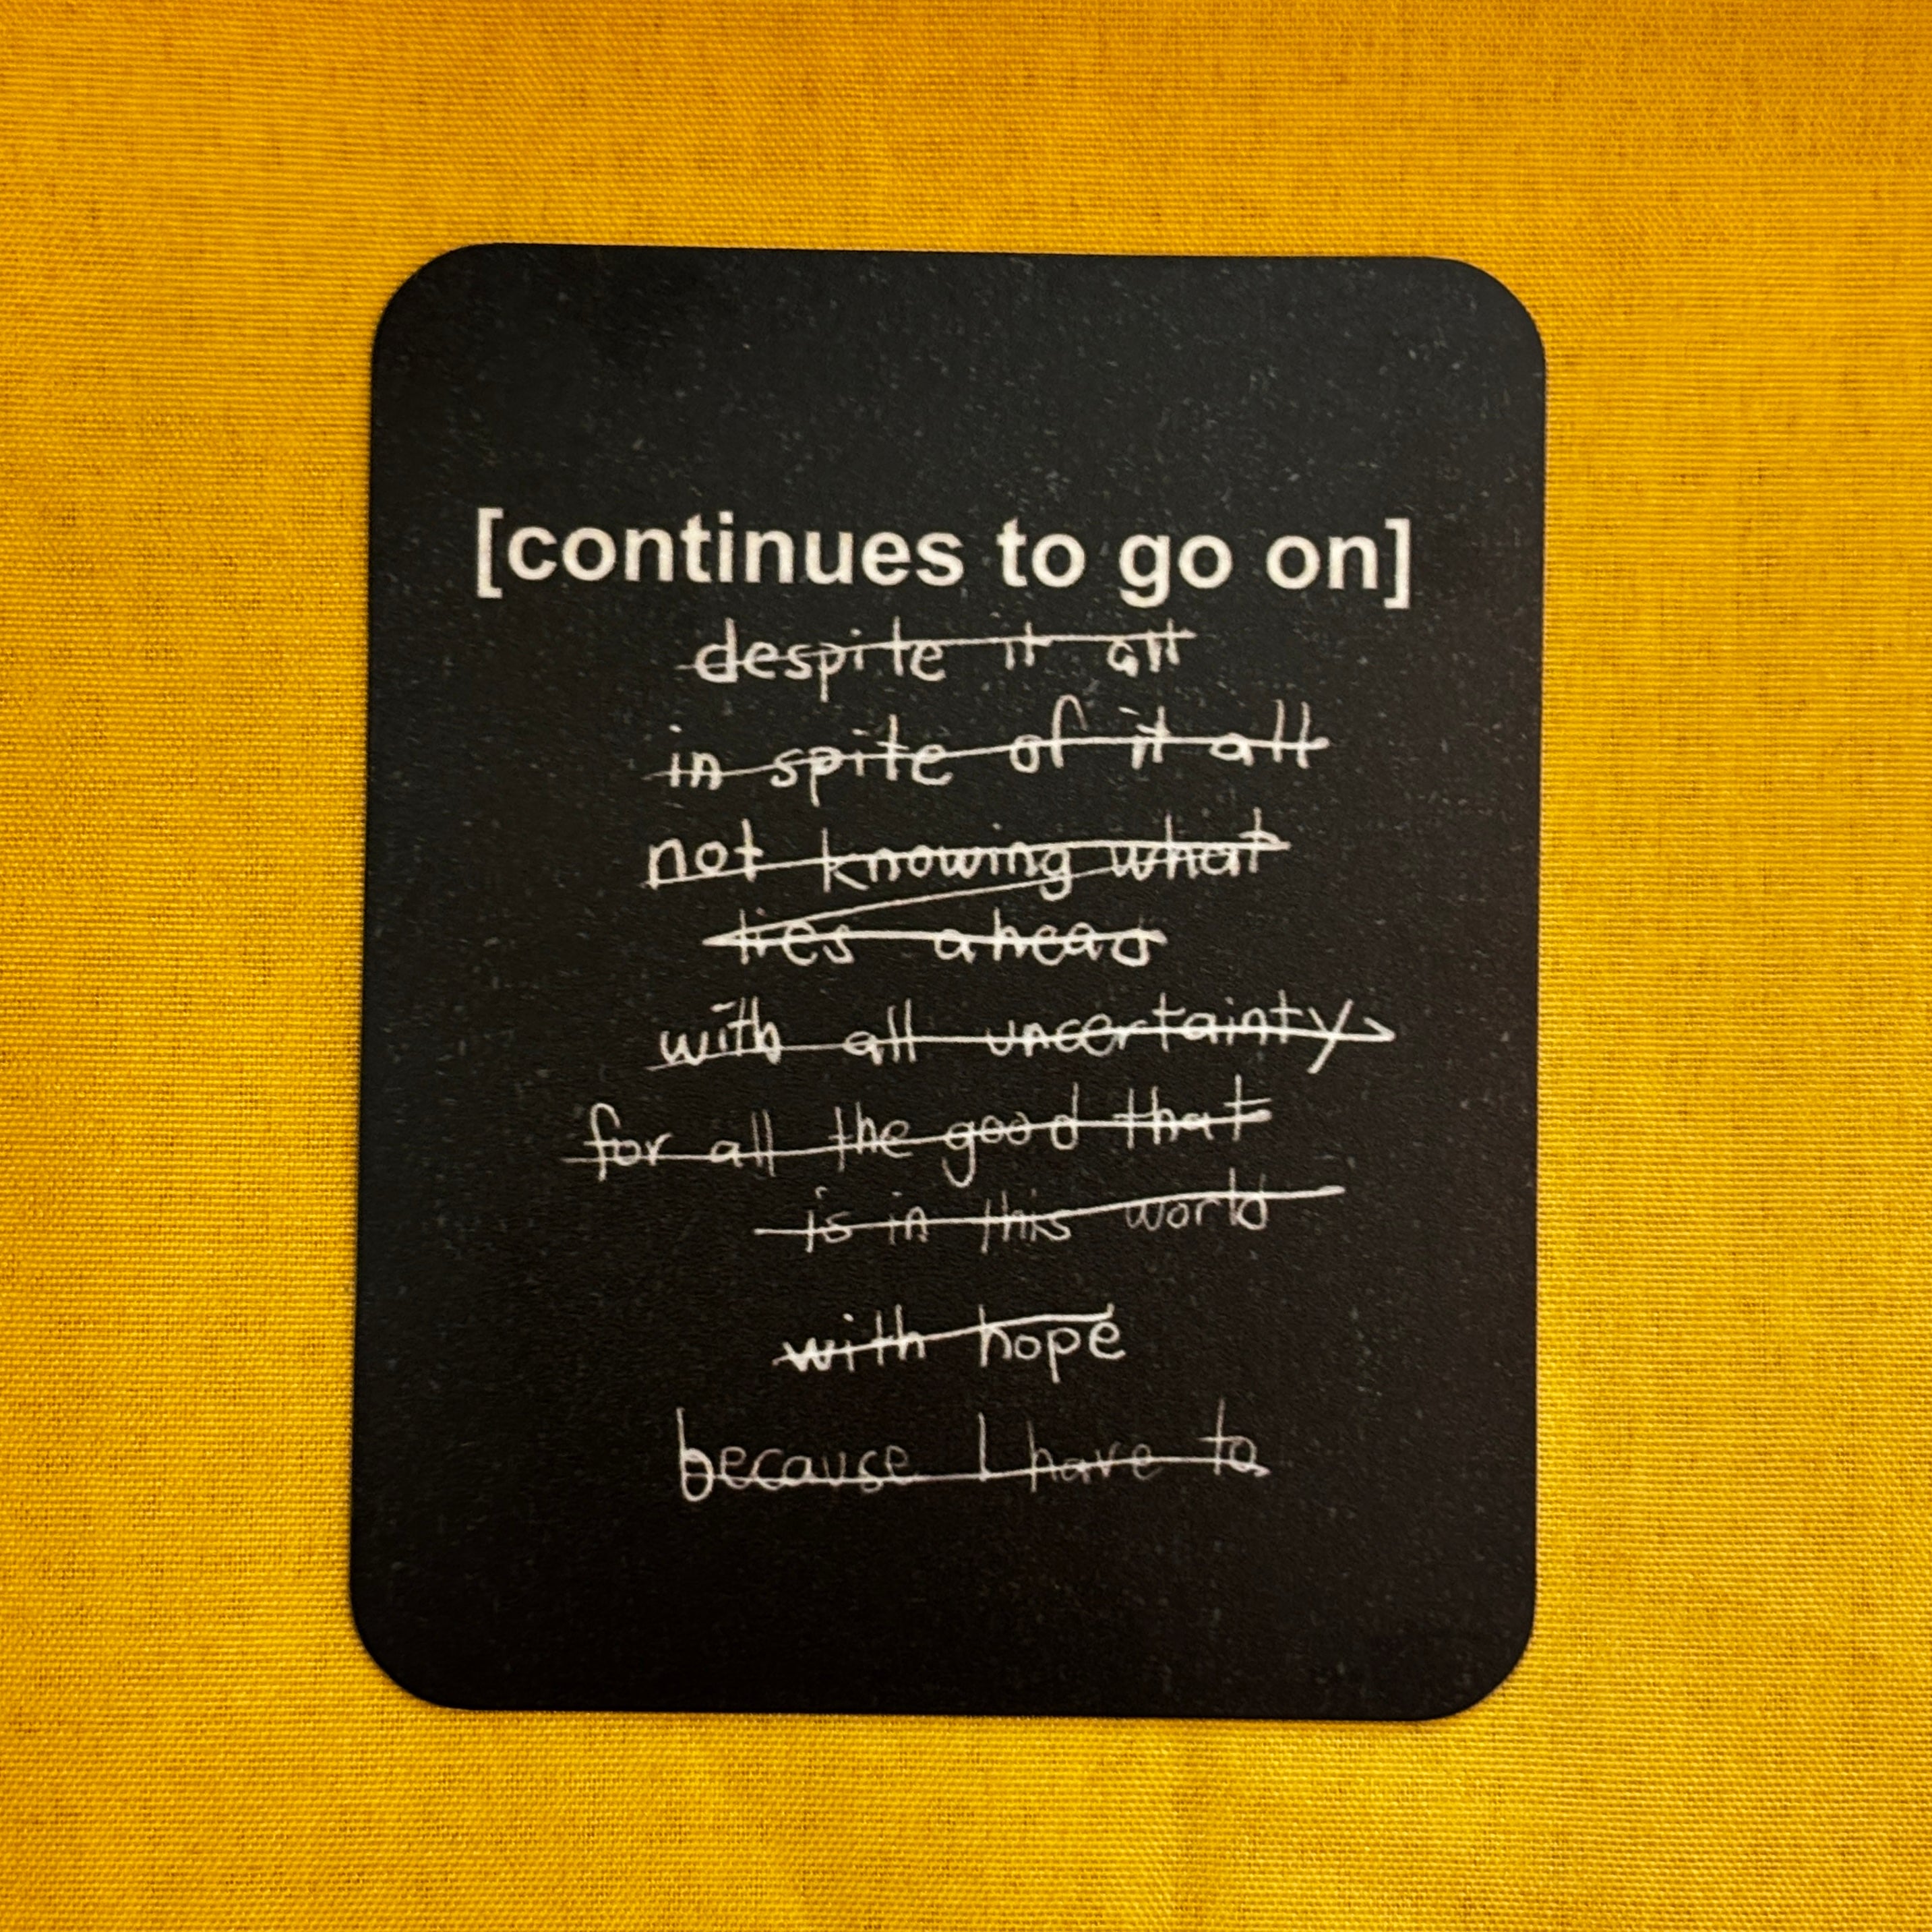 [continues to go on]
despite it all
in spite of it all
not knowing what
lies ahead
with all uncertainty
for all the good that
is in this world
with hope
because I have to